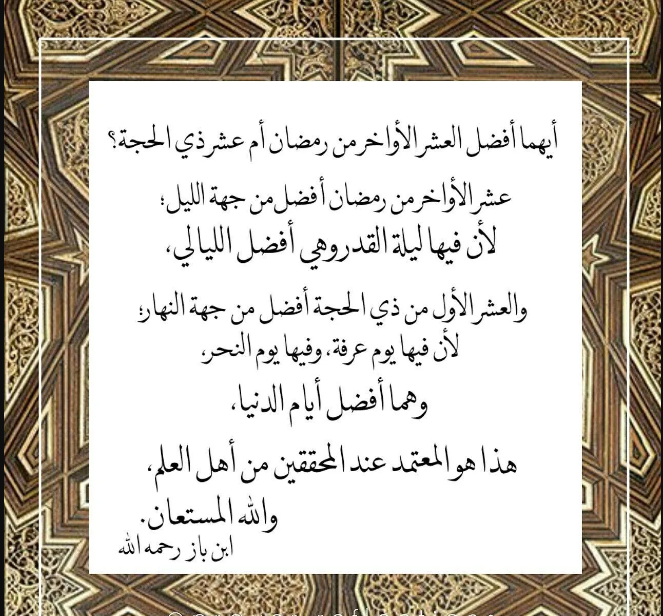 أيهما أفضل العشر الأواخر من رمضان أم عشر ذي الحجة؟
عشر الأواخر من رمضان أفضل من جهة الليل؛
لأن فيها ليلة القدر وهي أفضل الليالي،
والعشر الأول من ذي الحجة أفضل من جهة النهار؛
لأن فيها يوم عرفة، وفيها يوم النحر،
وهما أفضل أيام الدنيا،
هذا هو المعتمد عند المحققين من أهل العلم،
والله المستعان.
ابن باز رحمه الله